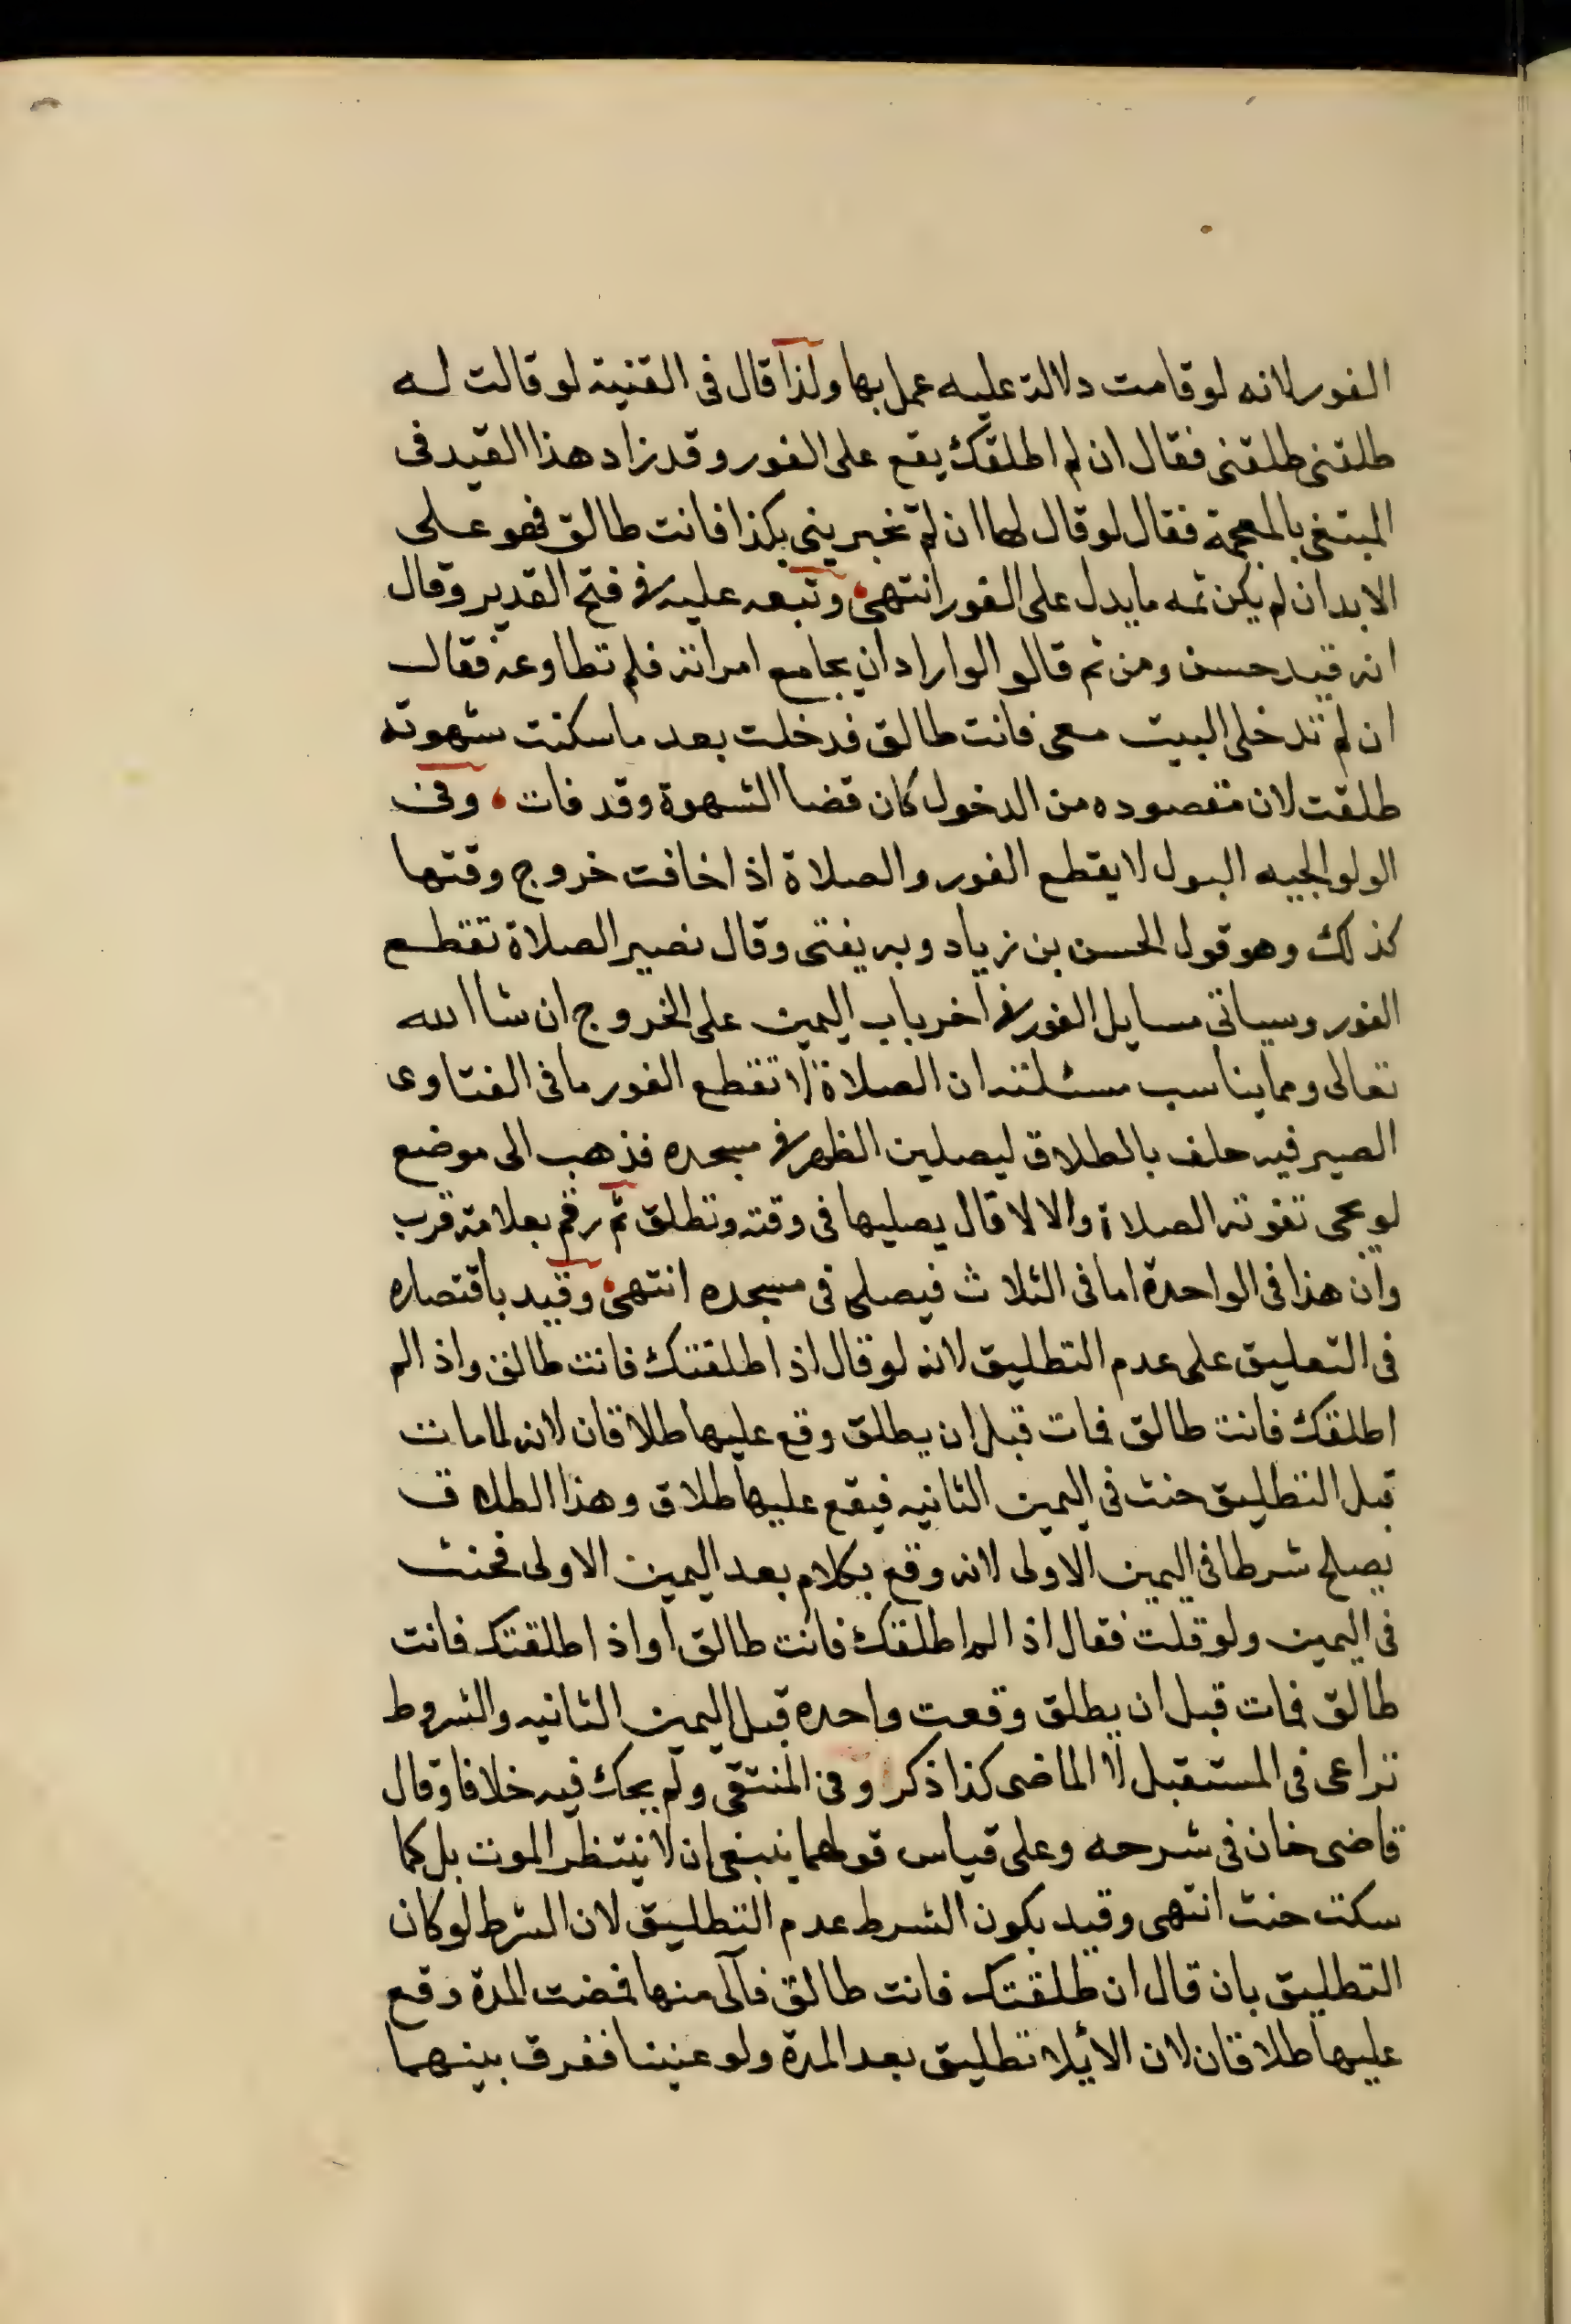 الفور لانه لو قامت دلالة عليه عمل بها ولذا قال فى القنية لو قالت له
طلقنى طلقنى فقال ان لم اطلقك يقع على الفور وقد زاد هذا القيد فى
المبتغى بالمعجمة فقال لو قال لها ان لم تخبرينى بكذا فانت طالق فهو على
الابد ان لم يكن ثمه ما يدل على الفور انتهى وتبعه عليه فى فتح القدير وقال
انه قيد حسن ومن ثم قالوا لو اراد ان يجامع امراته فلم تطاوعه فقال
ان لم تدخلى البيت معى فانت طالق فدخلت بعد ما سكنت شهوته
طلقت لان مقصوده من الدخول كان قضا الشهوة وقد فات وفى
الولوالجيه البول لا يقطع الفور والصلاة اذا خافت خروج وقتها
كذلك وهو قول الحسن بن زياد وبه يفتى وقال نصير الصلاة تقطع
الفور وسياتى مسايل الفور فى اخر باب اليمين على الخروج ان شا الله
تعالى ومما يناسب مسئلته ان الصلاة لا تقطع الفور ما فى الفتاوى
الصيرفيه حلف بالطلاق ليصلين الظهر فى مسجده فذهب الى موضع
لو يجى تفوته الصلاة والا لا قال يصليها فى وقته وتطلق ثم رقم بعلامة قرب
وان هذا فى الواحدة اما فى الثلاث فيصلى فى مسجده انتهى وقيد باقتصاره
فى التعليق على عدم التطليق لانه لو قال اذا طلقتك فانت طالق واذا لم
اطلقك فانت طالق فمات قبل ان يطلق وقع عليها طلاقان لانه لما مات
قبل التطليق حنث فى اليمين الثانيه فيقع عليها طلاق وهذا الطلاق
يصلح شرطا فى اليمين الاولى لانه وقع بكلام بعد اليمين الاولى فحنث
فى اليمين ولو قلت فقال اذا لم اطلقك فانت طالق او اذا طلقتك فانت
طالق فمات قبل ان يطلق وقعت واحده قبل اليمين الثانيه والشروط
تراعى فى المستقبل لا الماضى كذا ذكر وفى المنتقى ولم يحك فيه خلافا وقال
قاضى خان فى شرحه وعلى قياس قولهما ينبغى ان لا ينتظر الموت بل كما
سكت حنث انتهى وقيد بكون الشرط عدم التطليق لان الشرط لو كان
التطليق بان قال ان طلقتك فانت طالق فآلى منها فمضت المدة وقع
عليها طلاقان لان الأيلا تطليق بعد المدة ولو عنينا ففرق بينهما